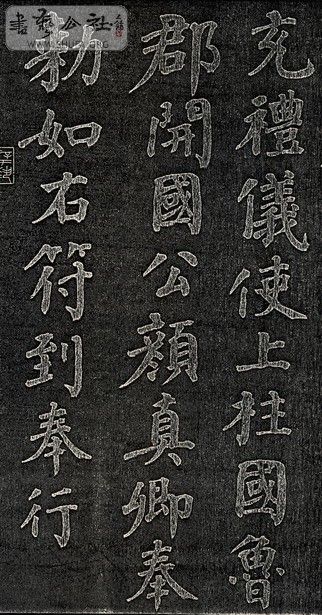 充禮儀使上柱國魯
郡開國公顔真卿奉
勑如右符到奉行